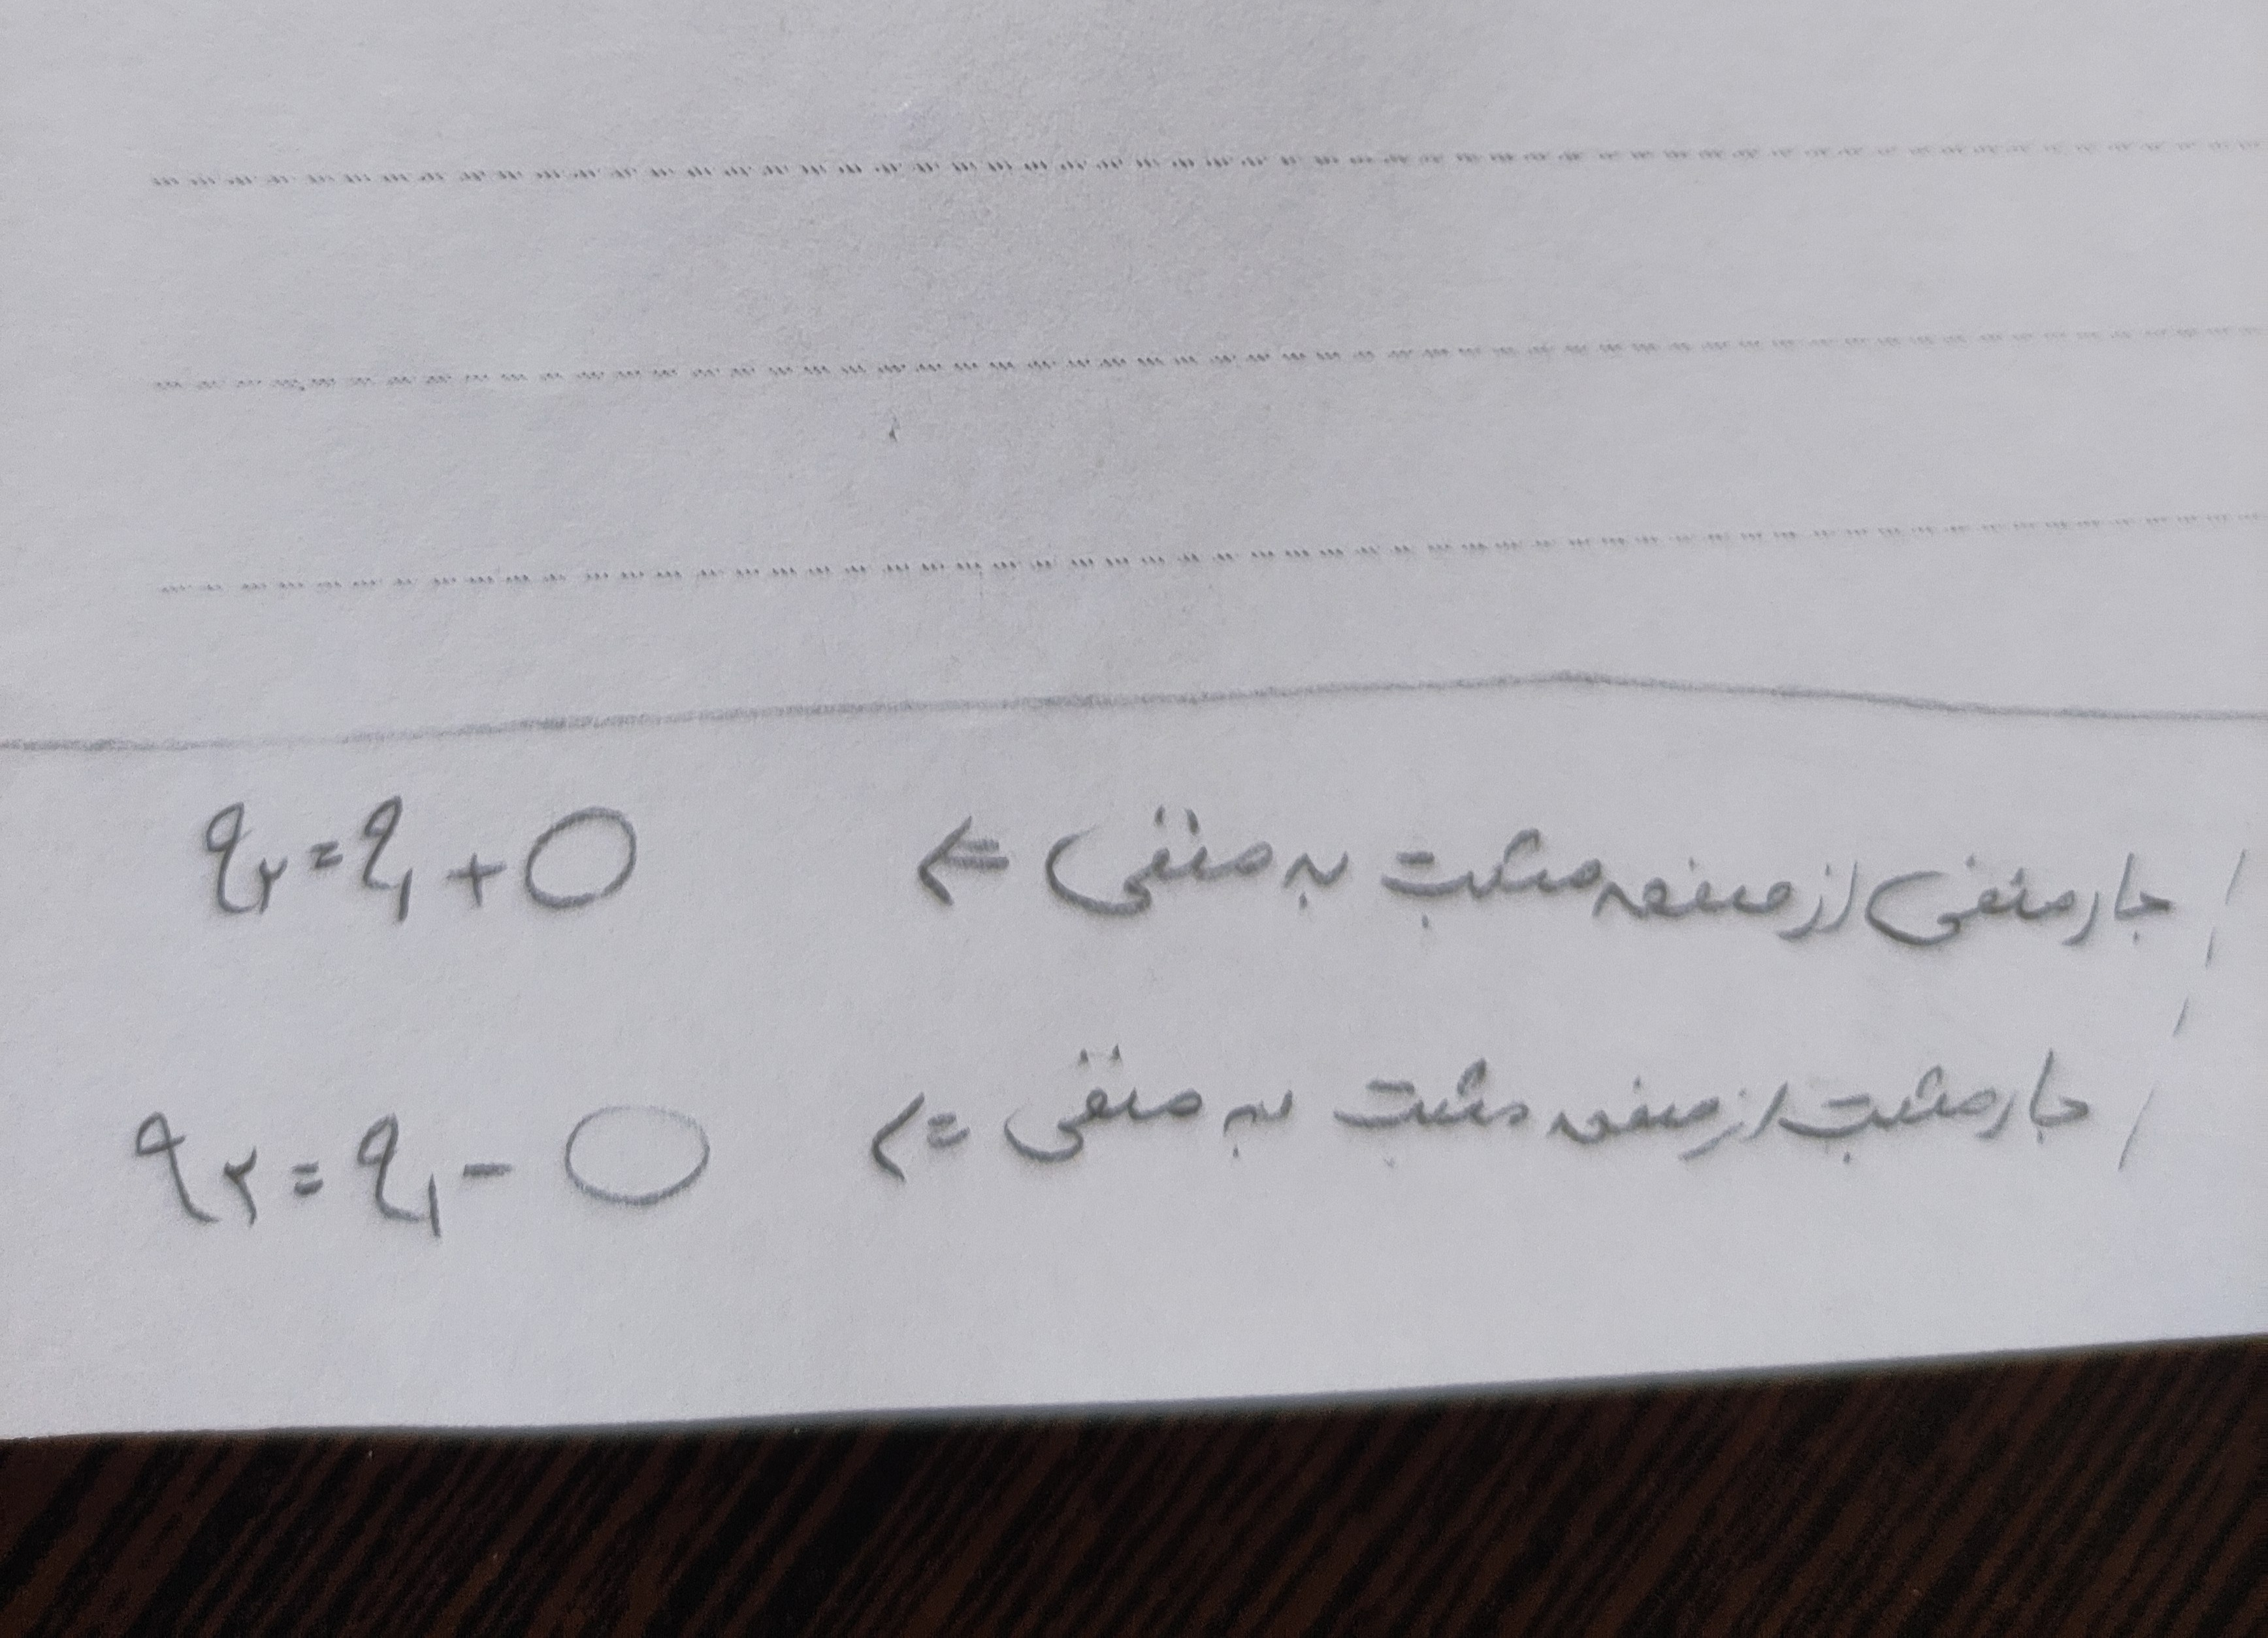 بار منفی از صفحه مثبت به منفی ⇐ q۲ = q۱ + ○
بار مثبت از صفحه مثبت به منفی ⇐ q۲ = q۱ - ○